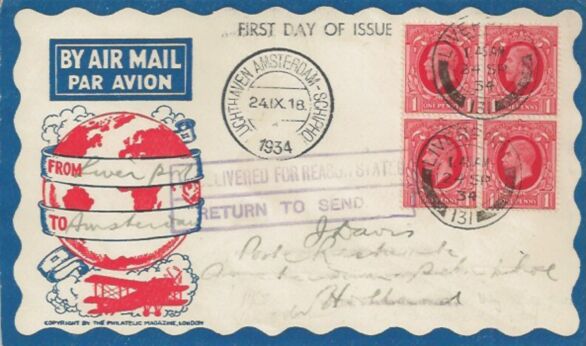 FIRST DAY OF ISSUE
BY AIR MAIL
PAR AVION
LUCHTHAVEN AMSTERDAM-SCHIPHOL
24.IX.18
1934
LIVERPOOL
24 SP
34
131
LIVERPOOL
SP
34
131
1 ONE PENNY 1
1 ONE PENNY 1
FROM Liverpool
TO Amsterdam
DELIVERED FOR REASON STATED
RETURN TO SEND
J Davis
Poste Restante
Holland
COPYRIGHT BY THE PHILATELIC MAGAZINE, LONDON